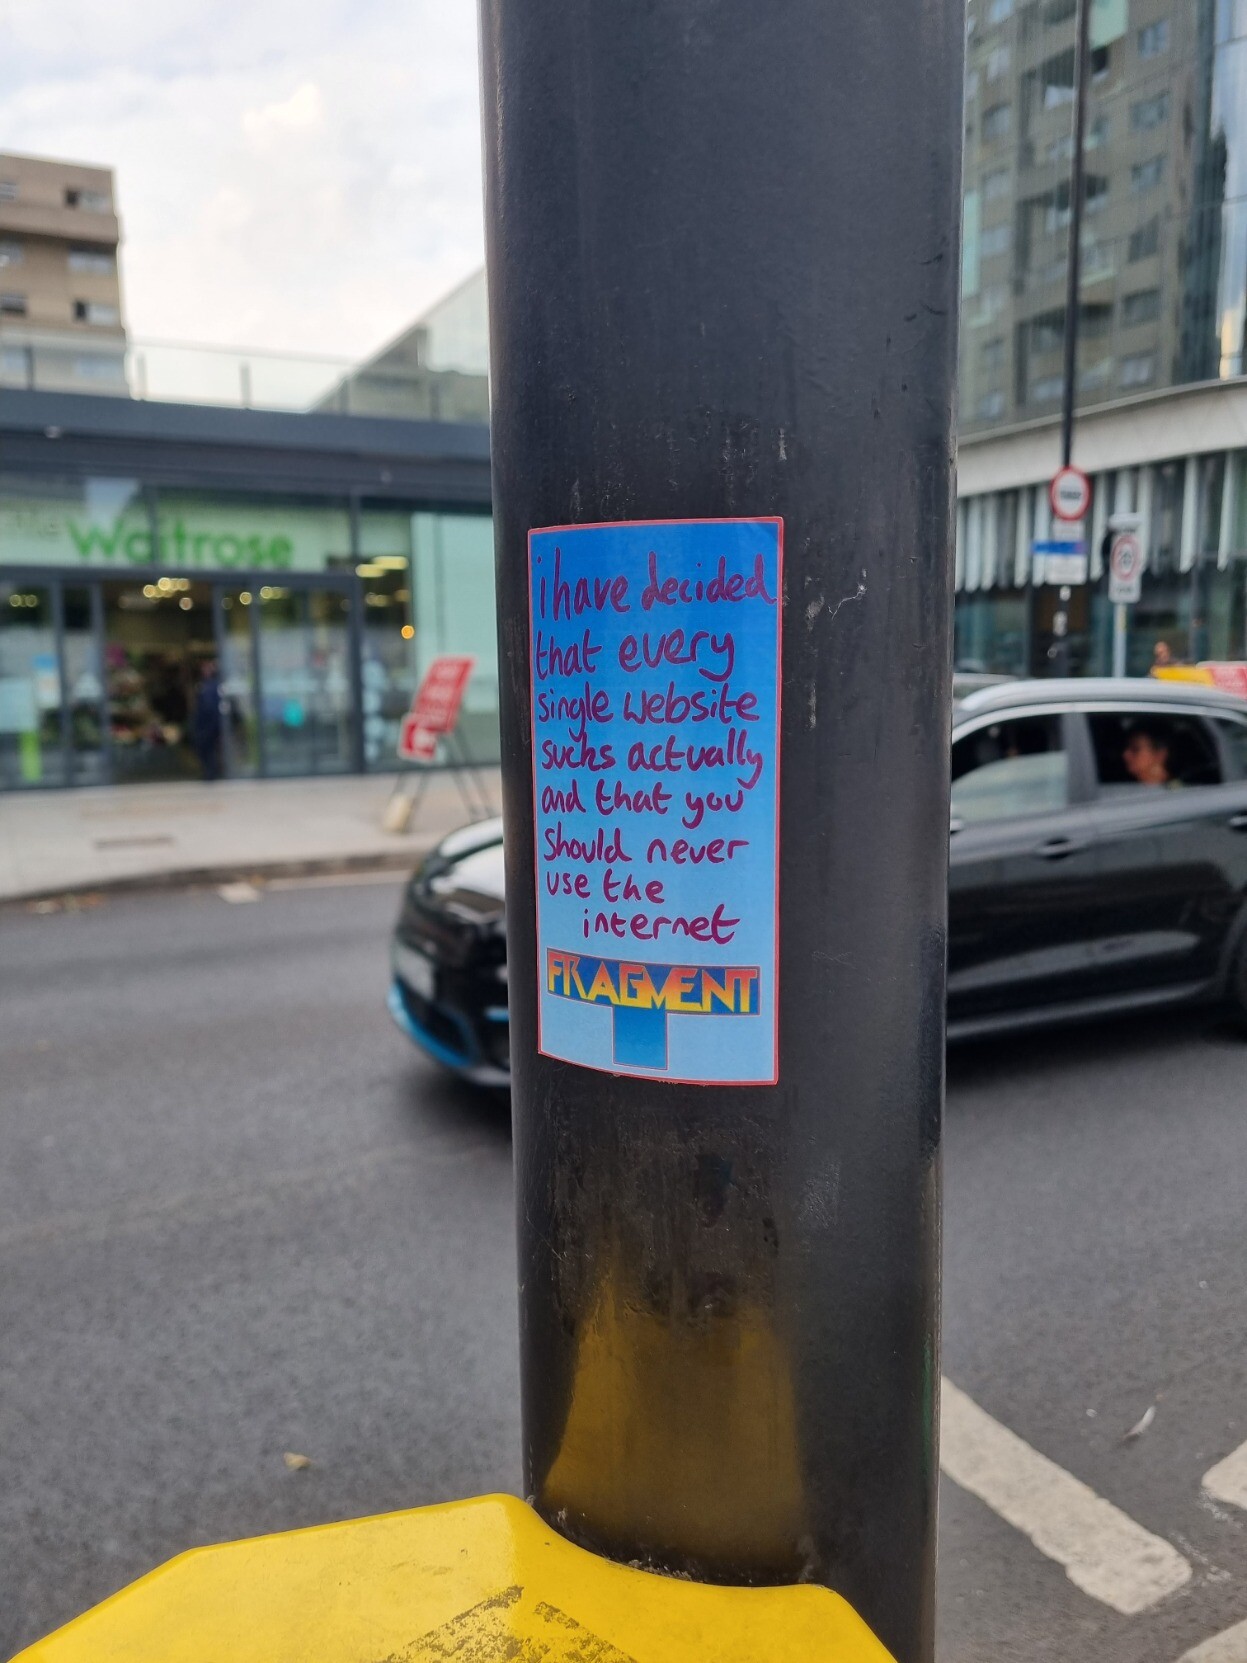 Waitrose
i have decided
that every
single website
sucks actually
and that you
should never
use the
internet
FRAGMENT
20